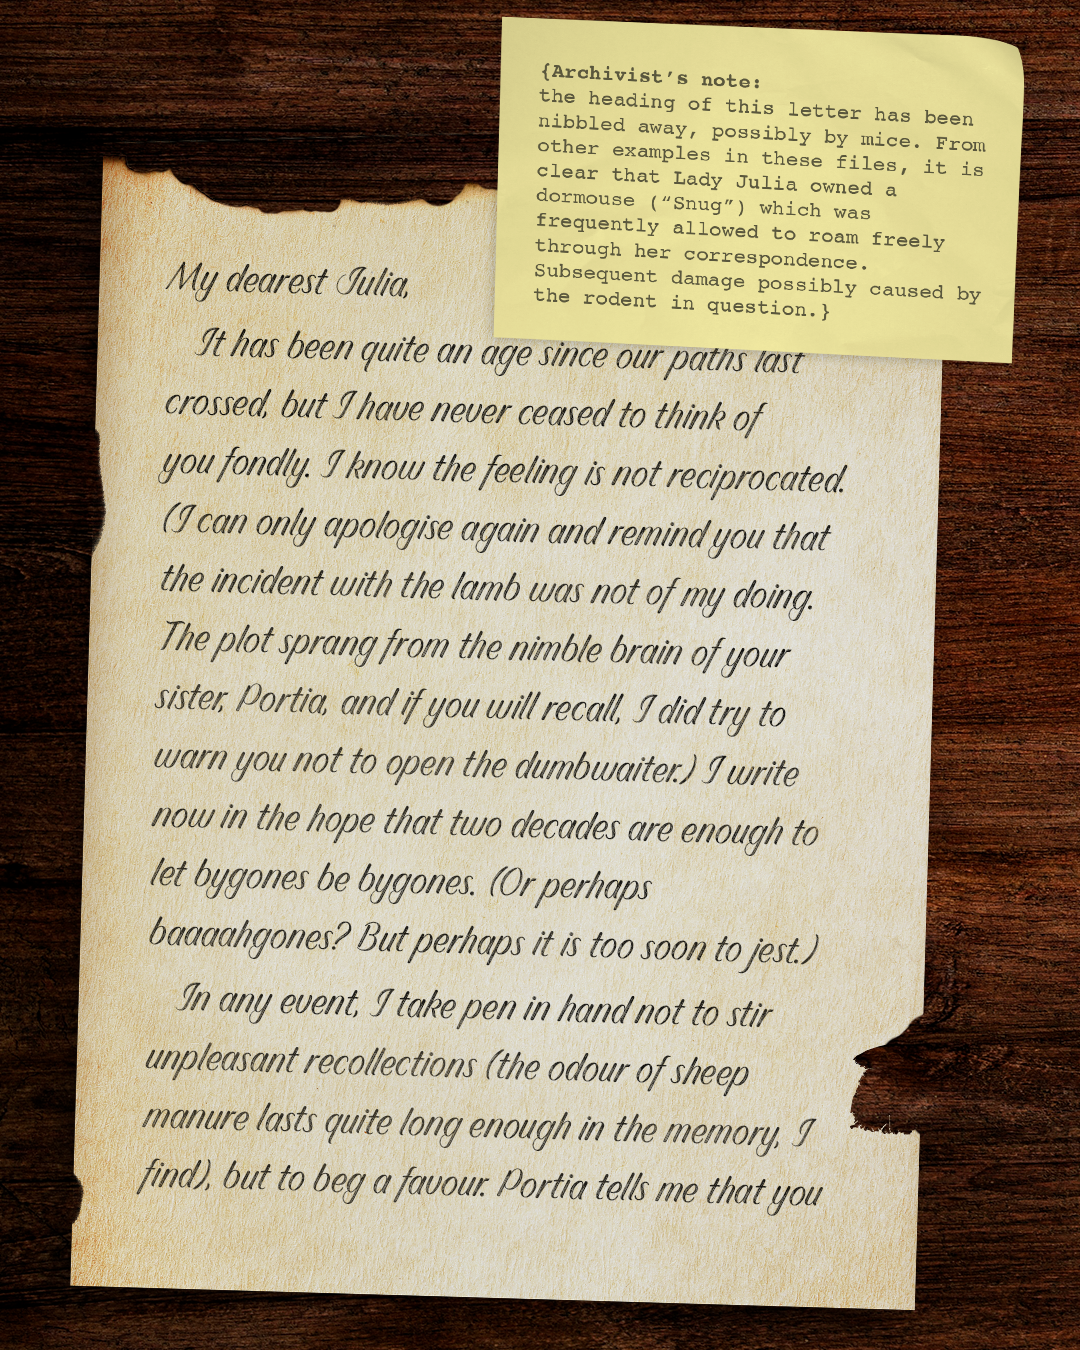 {Archivist's note:
the heading of this letter has been
nibbled away, possibly by mice. From
other examples in these files, it is
clear that Lady Julia owned a
dormouse (“Snug”) which was
frequently allowed to roam freely
through her correspondence.
Subsequent damage possibly caused by
the rodent in question.}
My dearest Julia,
It has been quite an age since our paths last
crossed, but I have never ceased to think of
you fondly. I know the feeling is not reciprocated.
(I can only apologise again and remind you that
the incident with the lamb was not of my doing.
The plot sprang from the nimble brain of your
sister, Portia, and if you will recall, I did try to
warn you not to open the dumbwaiter.) I write
now in the hope that two decades are enough to
let bygones be bygones. (Or perhaps
baaaahgones? But perhaps it is too soon to jest.)
In any event, I take pen in hand not to stir
unpleasant recollections (the odour of sheep
manure lasts quite long enough in the memory, I
find), but to beg a favour. Portia tells me that you